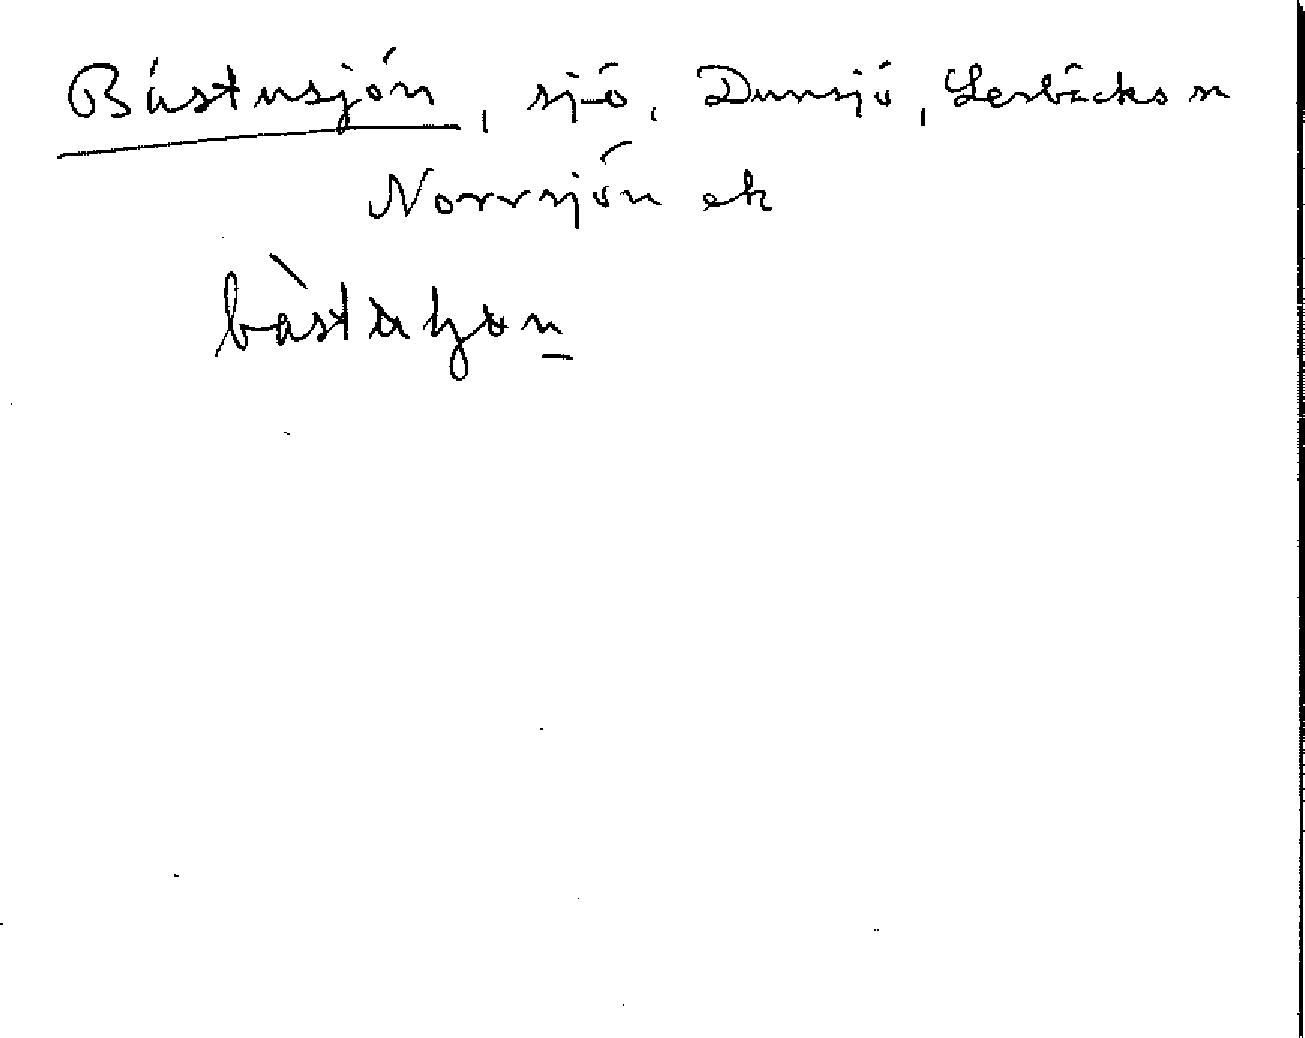 Bástusjön, sjö, Dunsjö, Lerbäcks sn
Norrsjön ek